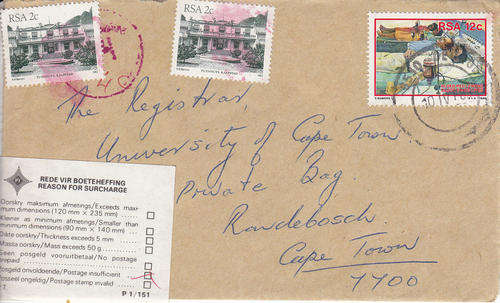 RSA 2c
RSA 2c
RSA 12c
The Registrar,
University of Cape Town
Private Bag.
Rondebosch.
Cape Town
7700
REDE VIR BOETEHEFFING
REASON FOR SURCHARGE
Oorskry maksimum afmetings/Exceeds maxi-
mum dimensions (120 mm × 235 mm)
Kleiner as minimum afmetings/Smaller than
minimum dimensions (90 mm × 140 mm)
Dikte oorskry/Thickness exceeds 5 mm
Massa oorskry/Mass exceeds 50 g
Geen posgeld vooruitbetaal/No postage
prepaid
Posgeld onvoldoende/Postage insufficient
Posseel ongeldig/Postage stamp invalid
P 1/151